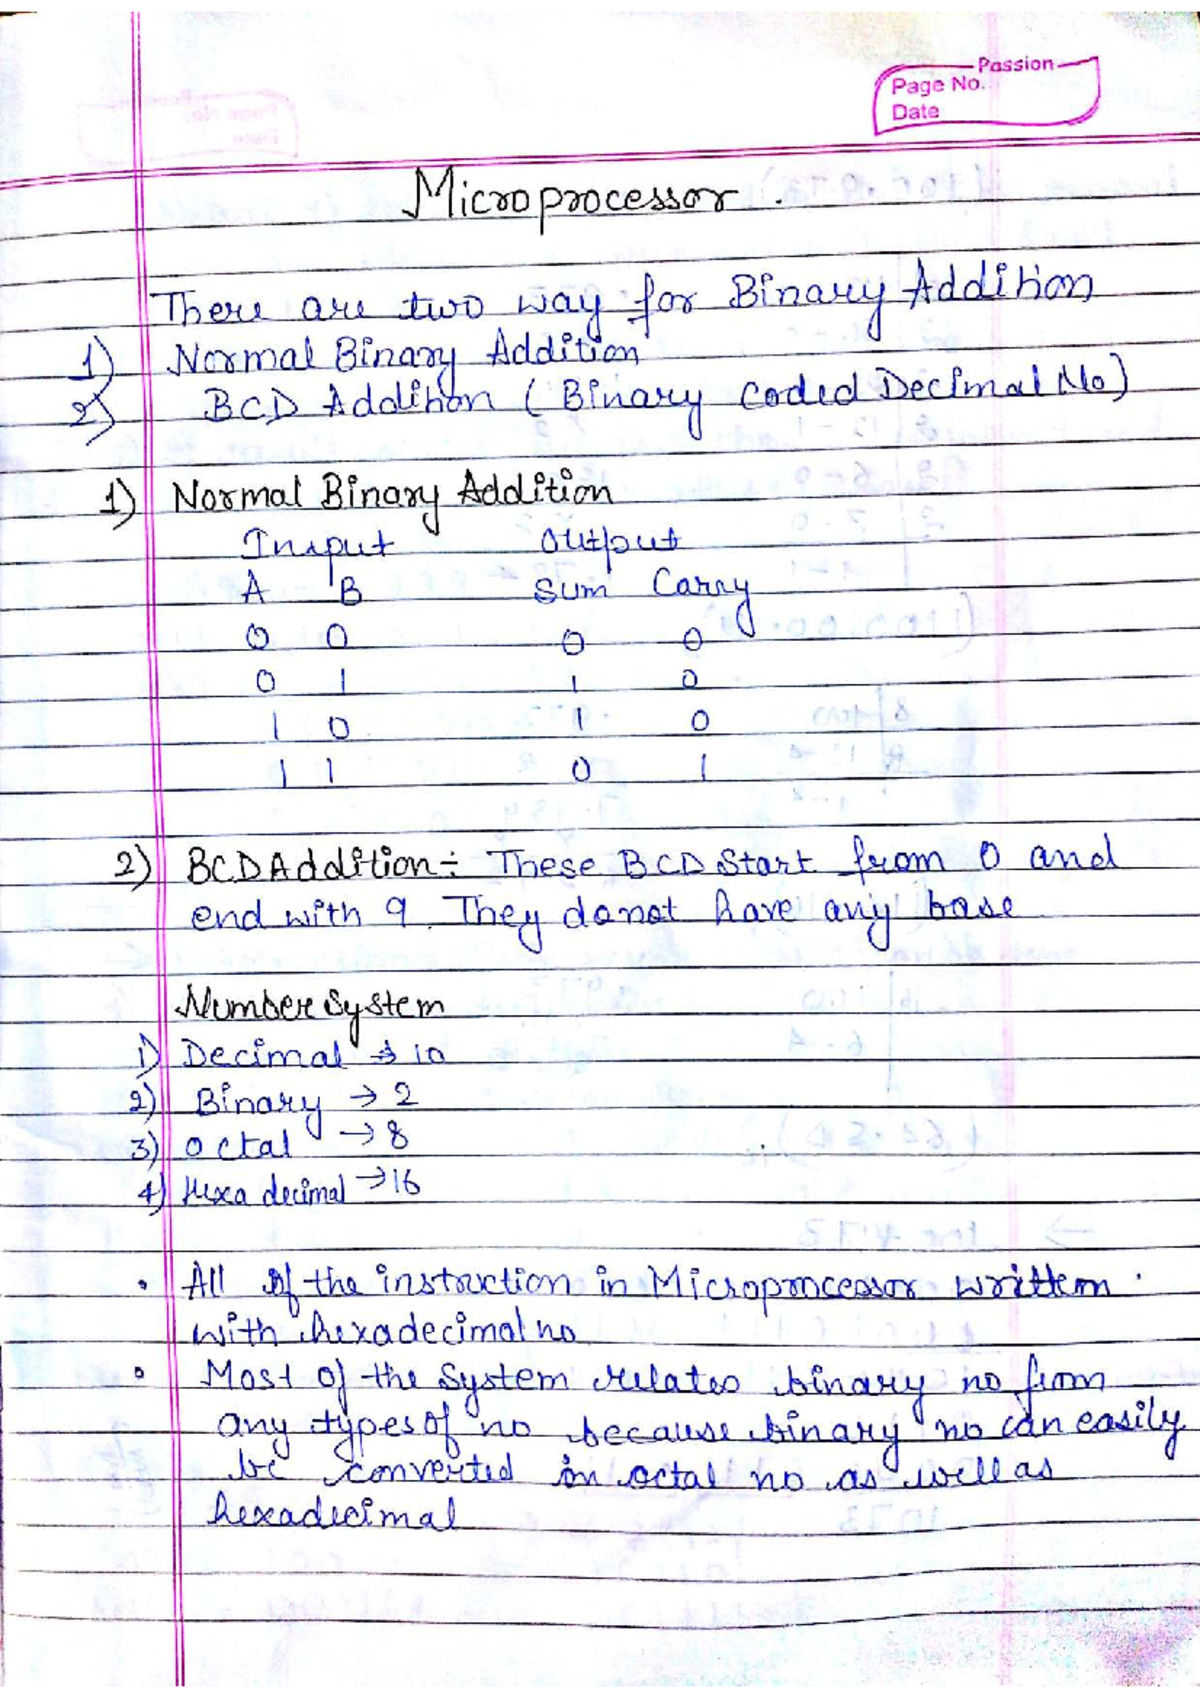 Passion
Page No.
Date
Microprocessor.
There are two way for Binary Addition
1) Normal Binary Addition
2) BCD Addition (Binary Coded Decimal No)
1) Normal Binary Addition
Input Output
A B Sum Carry
0 0 0 0
0 1 1 0
1 0 1 0
1 1 0 1
2) BCD Addition ÷ These BCD Start from 0 and
end with 9. They donot have any base
Number System
1) Decimal → 10
2) Binary → 2
3) Octal → 8
4) Hexa decimal → 16
• All of the instruction in Microprocessor written
with hexadecimal no
• Most of the System relates binary no from
any types of no because binary no can easily
be converted in octal no as well as
hexadecimal